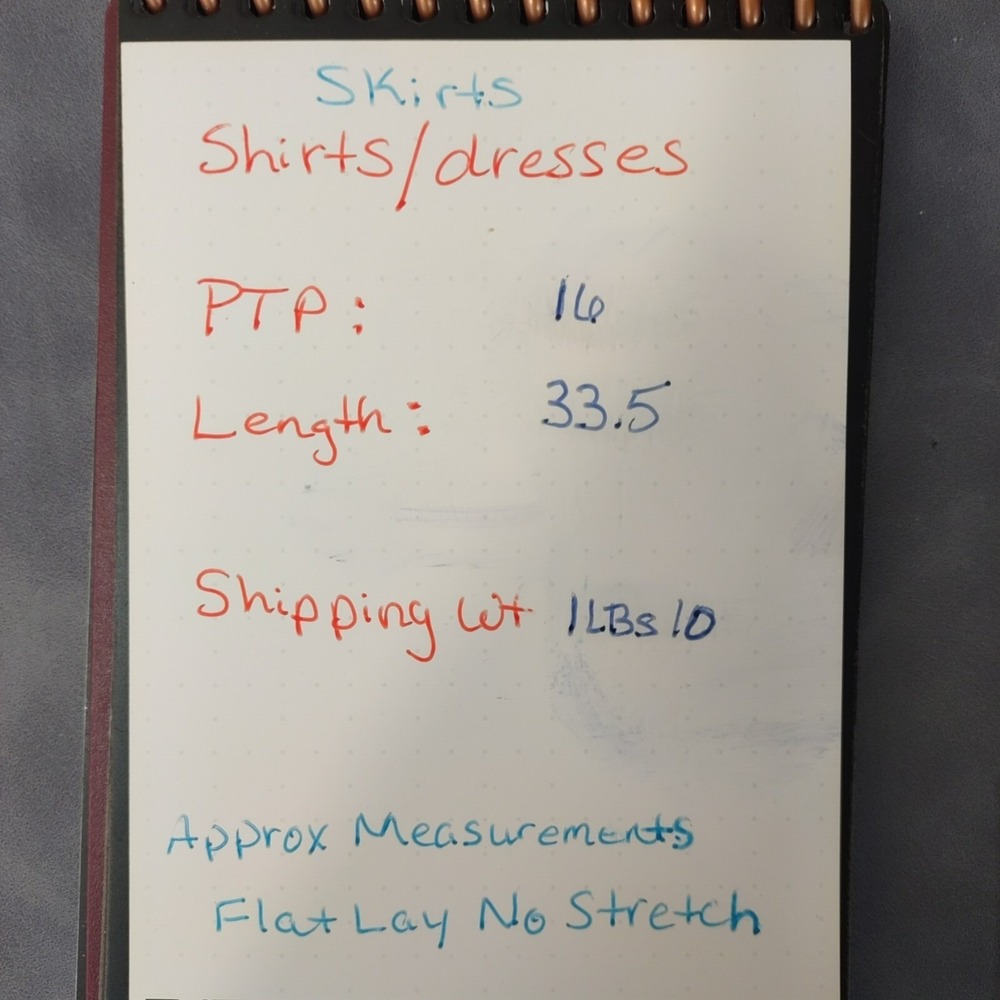 SKirts
Shirts/dresses
PTP: 16
Length: 33.5
Shipping Wt 1LBs 10
Approx Measurements
Flat Lay No Stretch